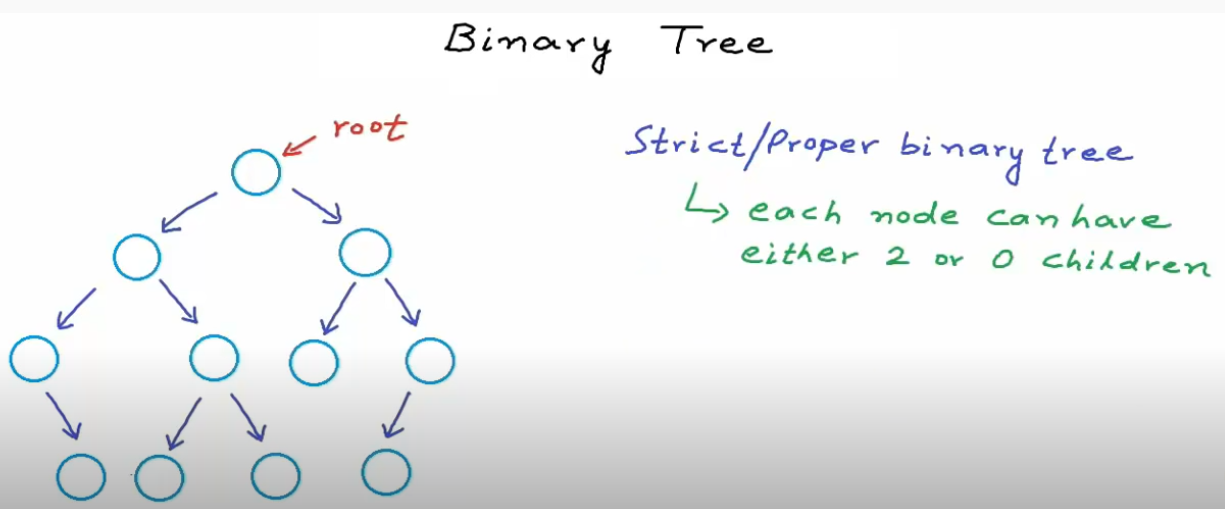 Binary Tree
root
Strict/Proper binary tree
↳ each node can have
either 2 or 0 children